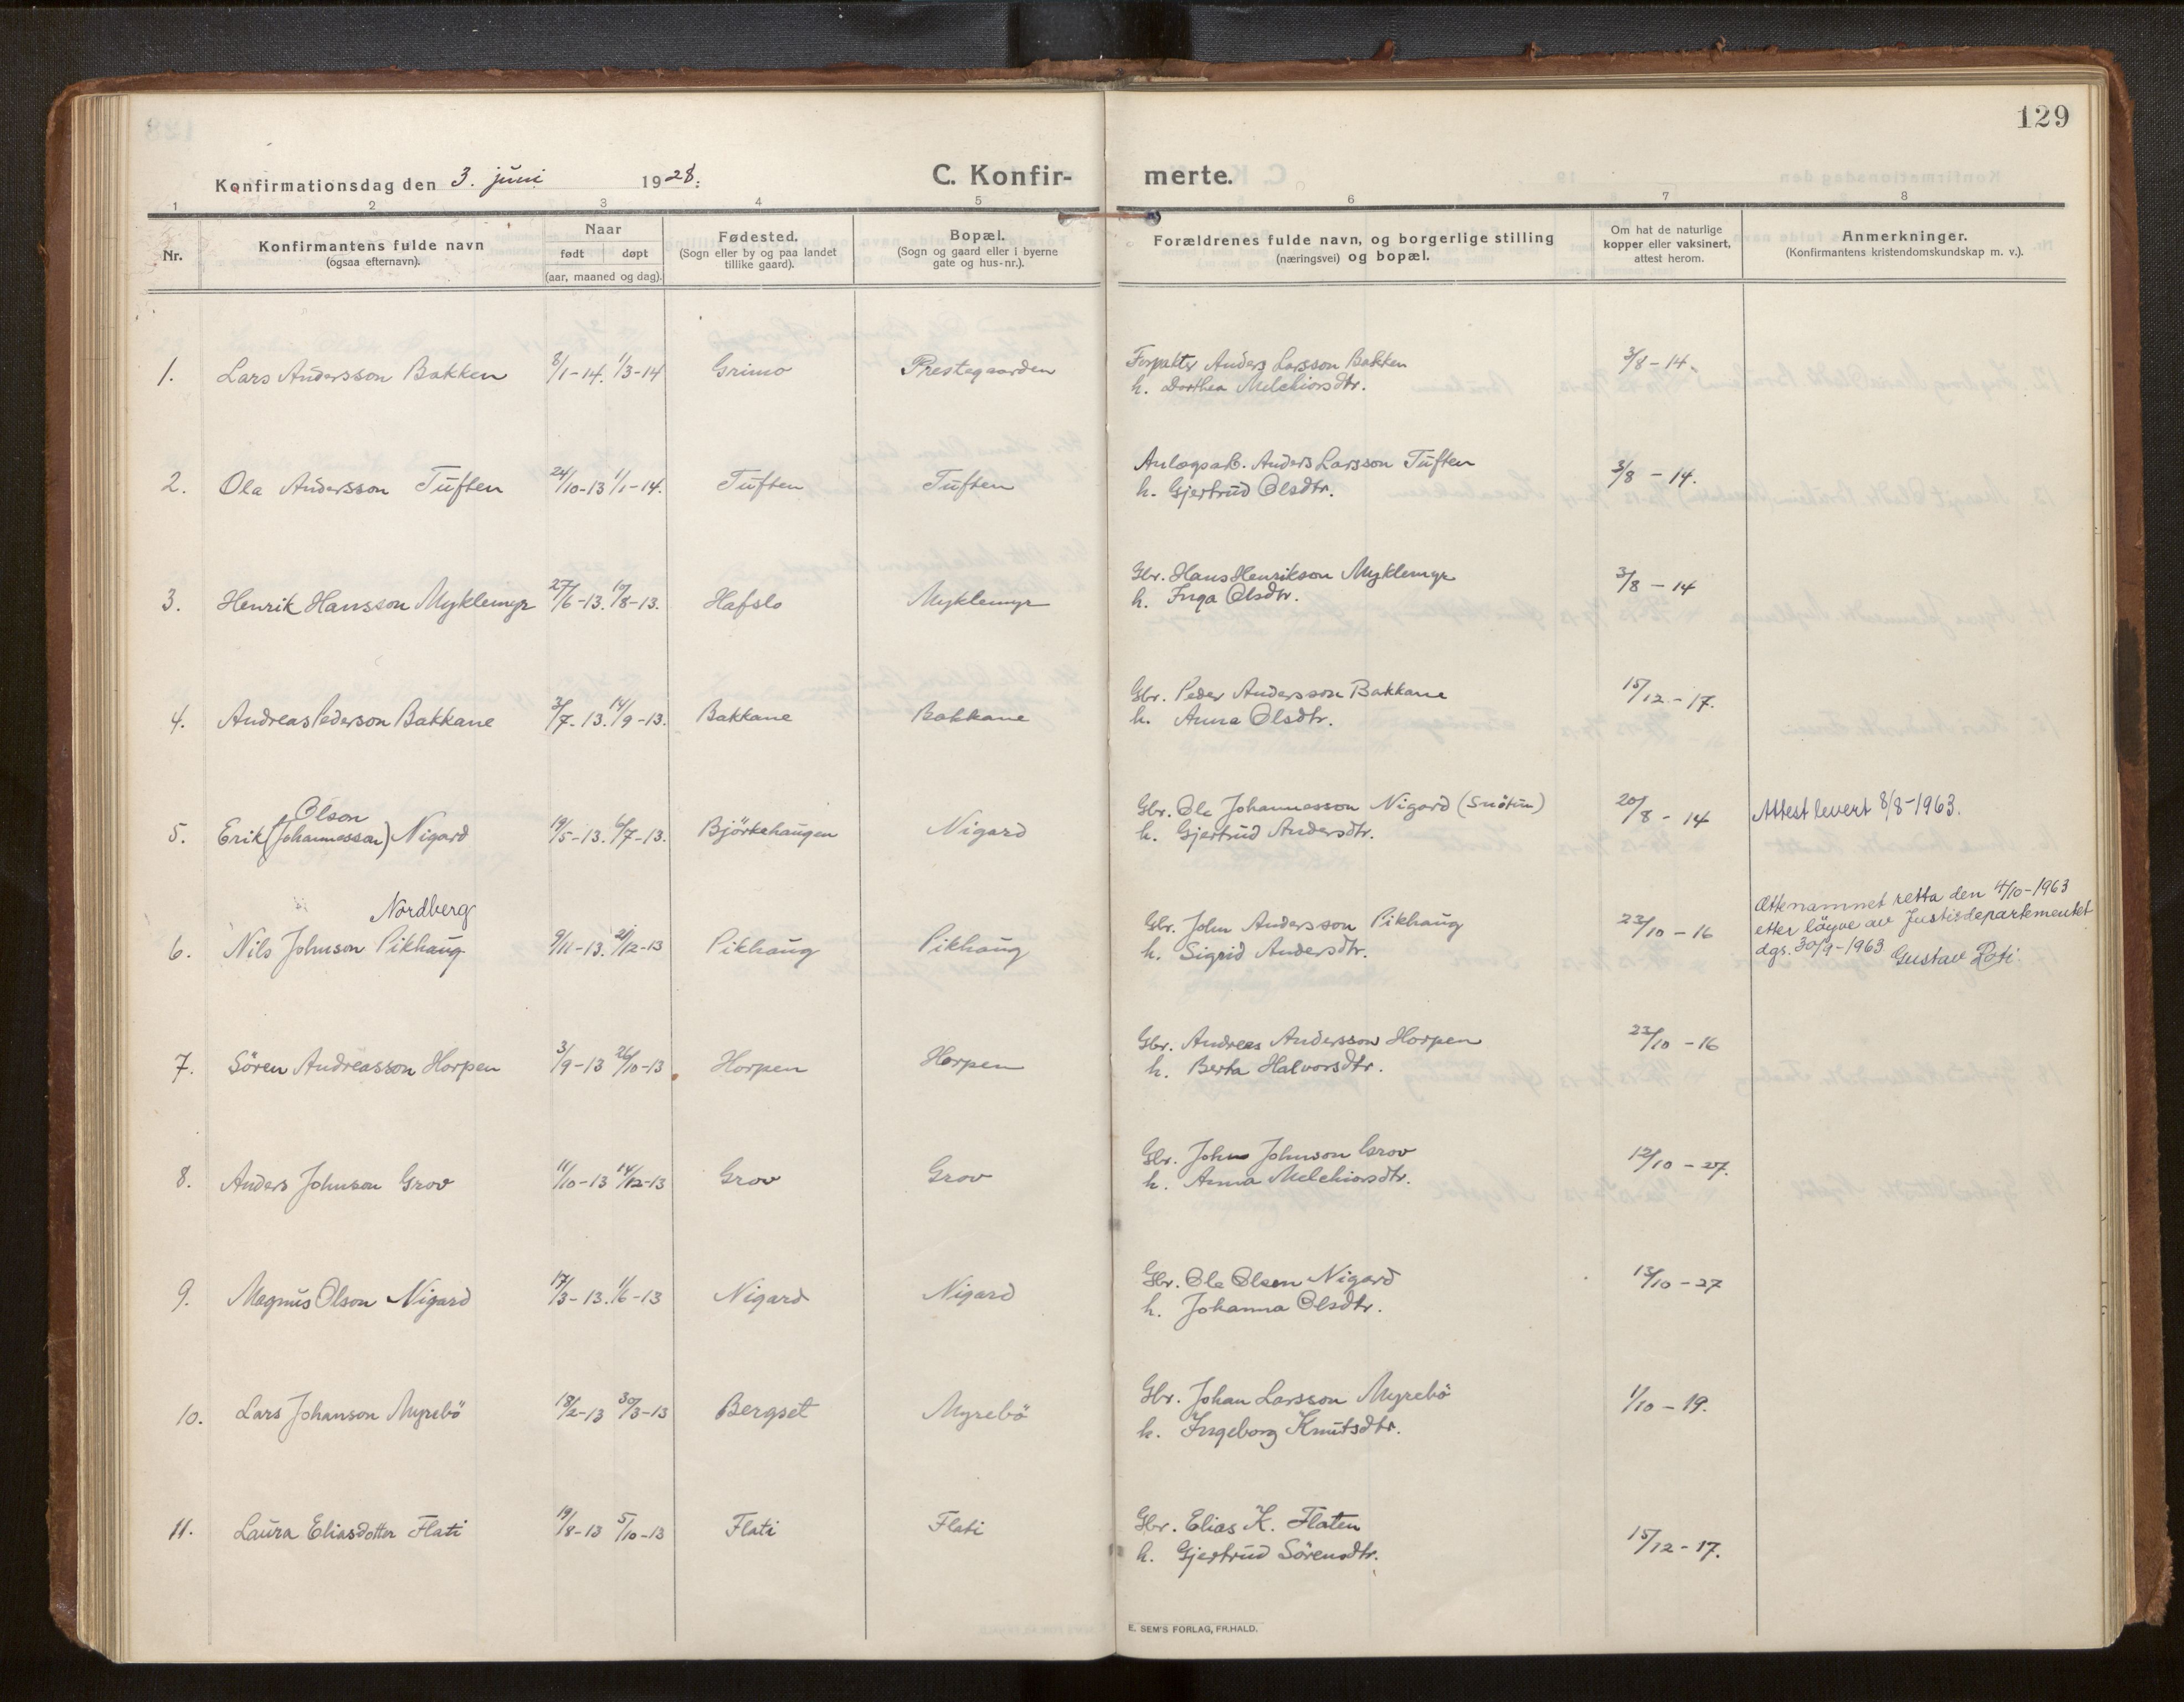 129
Konfirmationsdag den 3. juni 1928.
C. Konfirmerte.
1 2 3 4 5 6 7 8
Nr.
Konfirmantens fulde navn
(ogsaa efternavn).
Naar
født døpt
(aar, maaned og dag).
Fødested.
(Sogn eller by og paa landet
tillike gaard).
Bopæl.
(Sogn og gaard eller i byerne
gate og hus-nr.).
Forældrenes fulde navn, og borgerlige stilling
(næringsvei) og bopæl.
Om hat de naturlige
kopper eller vaksinert,
attest herom.
Anmerkninger.
(Konfirmantens kristendomskundskap m. v.).
1. Lars Andersson Bakken 8/1-14. 1/3-14 Grimo Prestegaarden
Forpakter Anders Larsson Bakken 3/8-14.
h. Dorthea Melchiorsdtr.
2. Ola Andersson Tuften 24/10-13 1/1-14. Tuften Tuften
Anlægsarb. Anders Larsson Tuften 3/8-14.
h. Gjertrud Olsdtr.
3. Henrik Hansson Myklemyr 27/6-13. 17/8-13. Hafslo Myklemyr
Gbr. Hans Henrikson Myklemyr 3/8-14
h. Inga Olsdtr.
4. Andreas Pederson Bakkane 3/7-13. 14/9-13. Bakkane Bakkane
Gbr. Peder Andersson Bakkane 15/12-17.
h. Anna Olsdtr.
Olson
5. Erik (Johannesson) Nigard 19/5-13. 6/7-13. Björkehaugen Nigard
Gbr. Ole Johannesson Nigard (Snötun) 20/8-14 Attest levert 8/8-1963.
h. Gjertrud Andersdtr.
Nordberg
6. Nils Johnson Pikhaug 9/11-13. 21/12-13 Pikhaug Pikhaug
Gbr. John Andersson Pikhaug 23/10-16
h. Sigrid Andersdtr.
Ættenamnet retta den 4/10-1963
etter löyve av Justisdepartementet
dgs. 30/9-1963 Gustav Roti
7. Sören Andreasson Horpen 3/9-13 26/10-13 Horpen Horpen
Gbr. Andreas Andersson Horpen 23/10-16
h. Berta Halvorsdtr.
8. Anders Johnson Grov 11/10-13 14/12-13 Grov Grov
Gbr. John Johnson Grov 12/10-27.
h. Anna Melchiorsdtr.
9. Magnus Olson Nigard 17/3-13. 1/6-13 Nigard Nigard
Gbr. Ole Olsen Nigard 13/10-27
h. Johanna Olsdtr.
10. Lars Johanson Myrebö 18/2-13 30/3-13 Bergset Myrebö
Gbr. Johan Larsson Myrebö 1/10-19.
h. Ingeborg Knutsdtr.
11. Laura Eliasdotter Flati 19/8-13 5/10-13 Flati Flati
Gbr. Elias K. Flaten 15/12-17.
h. Gjertrud Sörensdtr.
E. SEM'S FORLAG, FR.HALD.